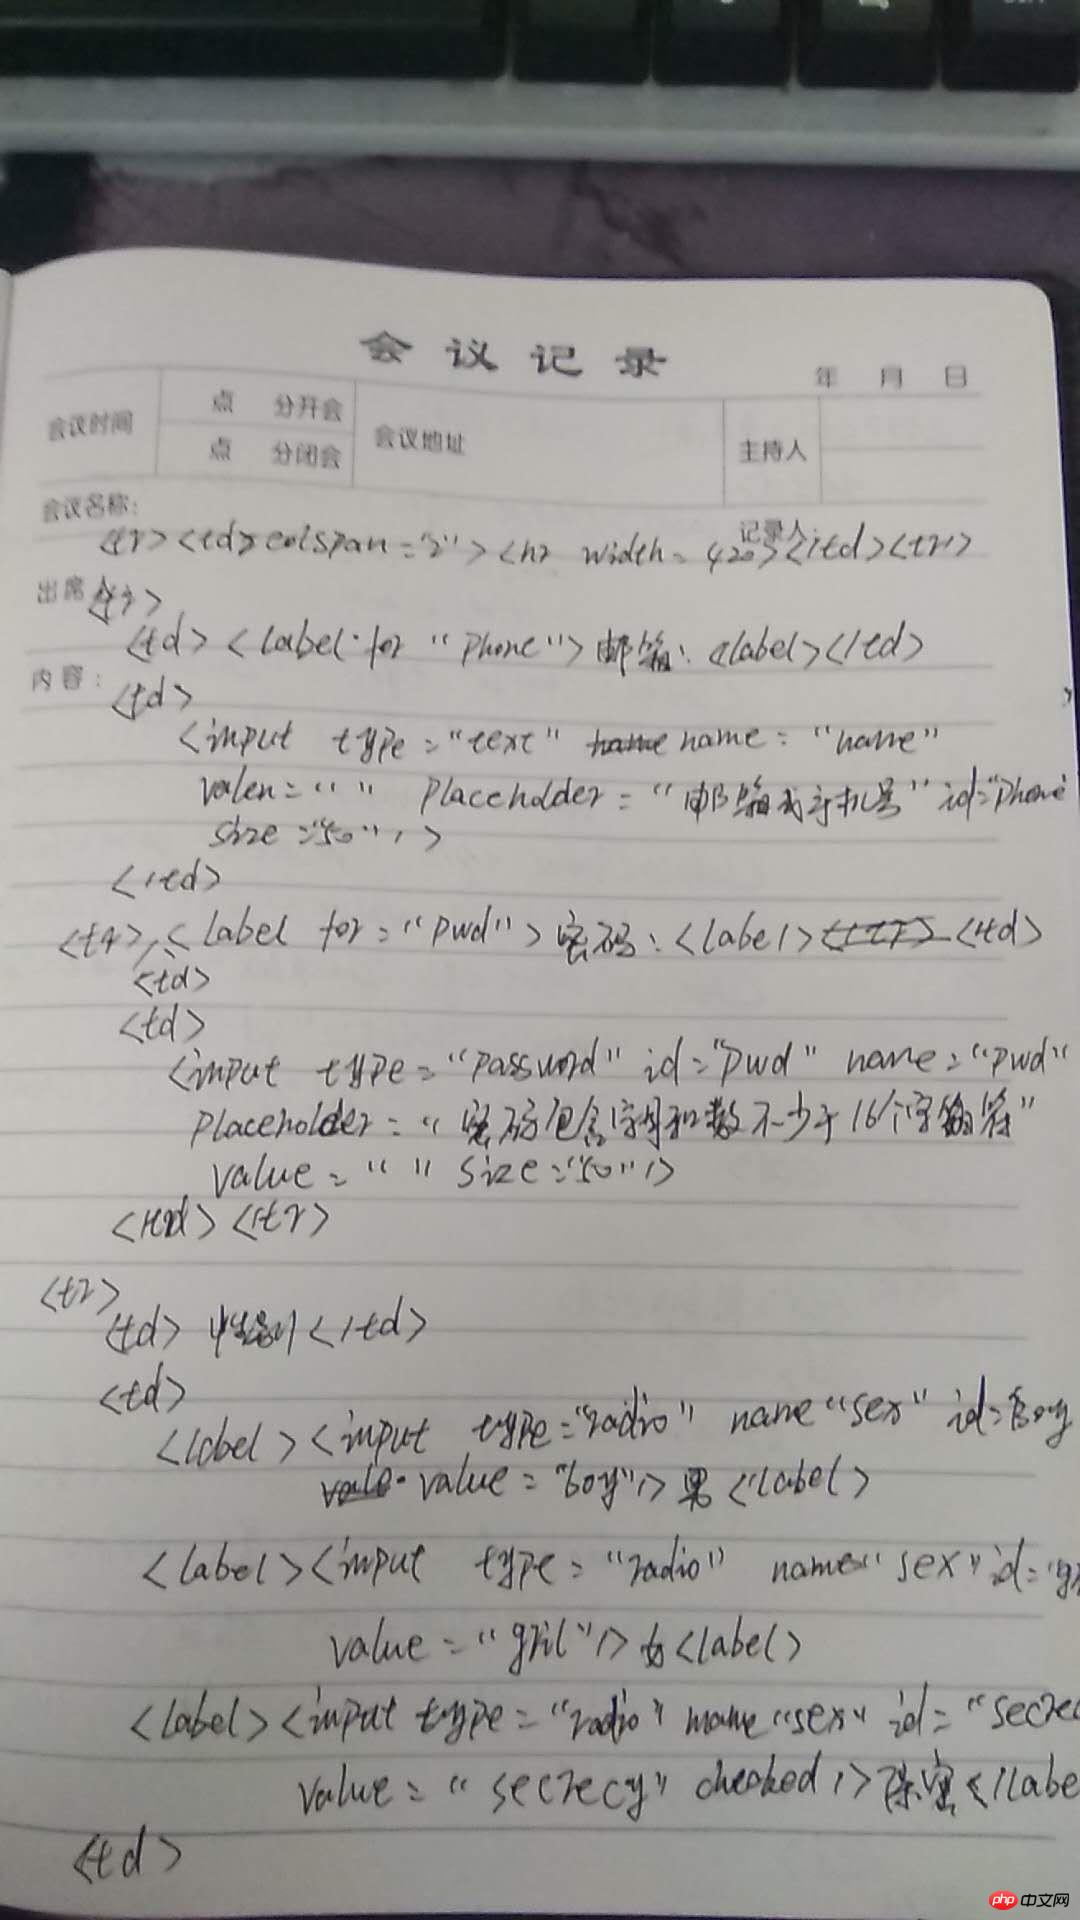 会议记录
年 月 日
会议时间 点 分开会 会议地址 主持人
点 分闭会
会议名称: 记录人
<tr><td>colspan="2"><hr width=420></td><tr>
出席
<tr>
<td><label for "phone">邮箱:<label></td>
内容:
<td>
<input type="text" name="name"
valen="" placeholder="邮箱或手机号" id="phone
size="50"/>
</td>
<tr><label for="pwd">密码:<label></td>
<td>
<td>
<input type="password" id="pwd" name="pwd"
placeholder="密码包含字母和数不少于16个字符"
value="" size="50"/>
</td></tr>
<tr>
<td>性别</td>
<td>
<label><input type="radio" name"sex" id="boy
value="boy"/>男</label>
<label><input type="radio" name"sex" id=
value="gril"/>女<label>
<label><input type="radio" name"sex" id="secre
value="secrecy" checked/>保密</labe
<td>
php中文网